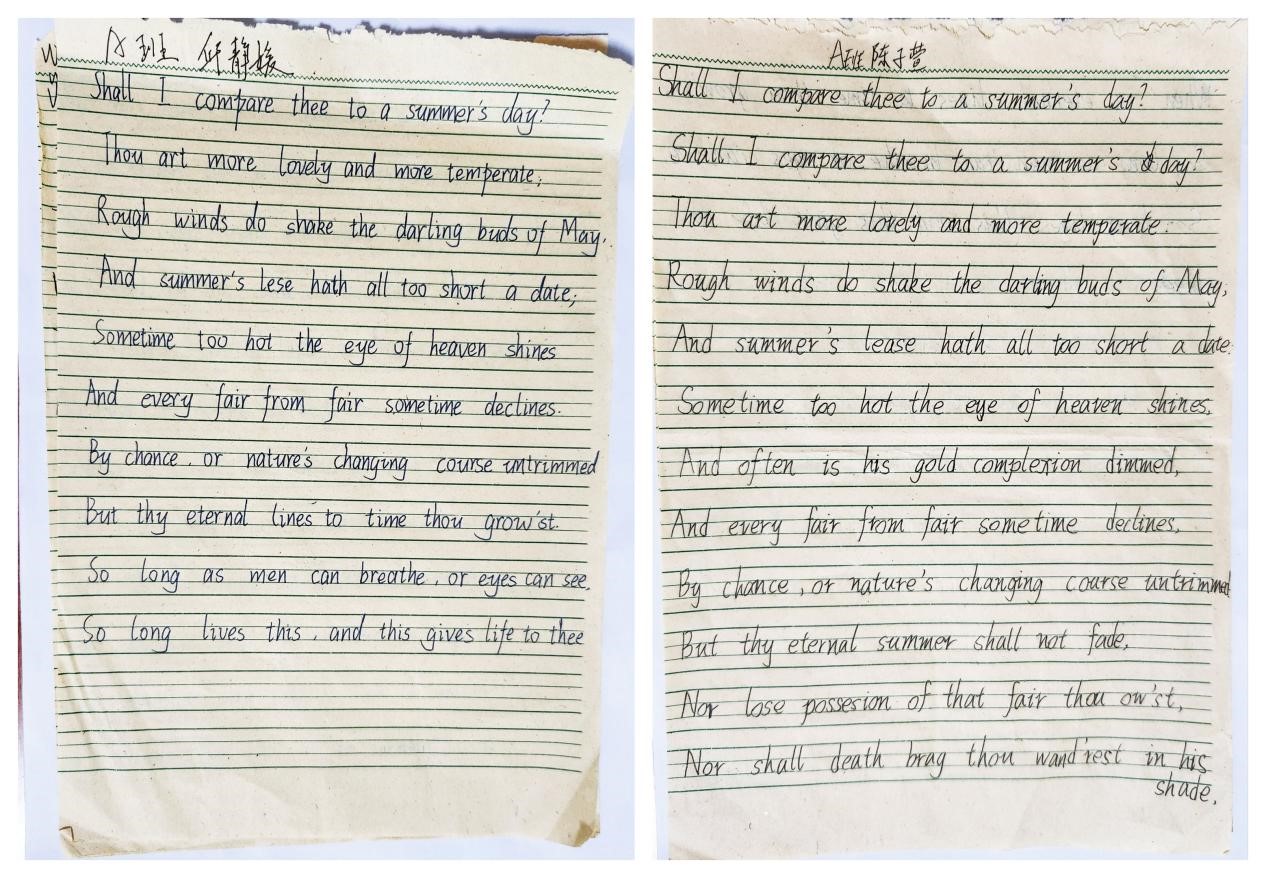 A班 邱静媛
Shall I compare thee to a summer's day?
Thou art more lovely and more temperate;
Rough winds do shake the darling buds of May,
And summer's lese hath all too short a date;
Sometime too hot the eye of heaven shines
And every fair from fair sometime declines.
By chance, or nature's changing course untrimmed
But thy eternal lines to time thou grow'st.
So long as men can breathe, or eyes can see,
So long lives this, and this gives life to thee
A班 陈子萱
Shall I compare thee to a summer's day?
Shall I compare thee to a summer's day?
Thou art more lovely and more temperate:
Rough winds do shake the darling buds of May,
And summer's lease hath all too short a date:
Sometime too hot the eye of heaven shines,
And often is his gold complexion dimmed,
And every fair from fair sometime declines,
By chance, or nature's changing course untrimmed
But thy eternal summer shall not fade,
Nor lose possesion of that fair thou ow'st,
Nor shall death brag thou wand'rest in his
shade,